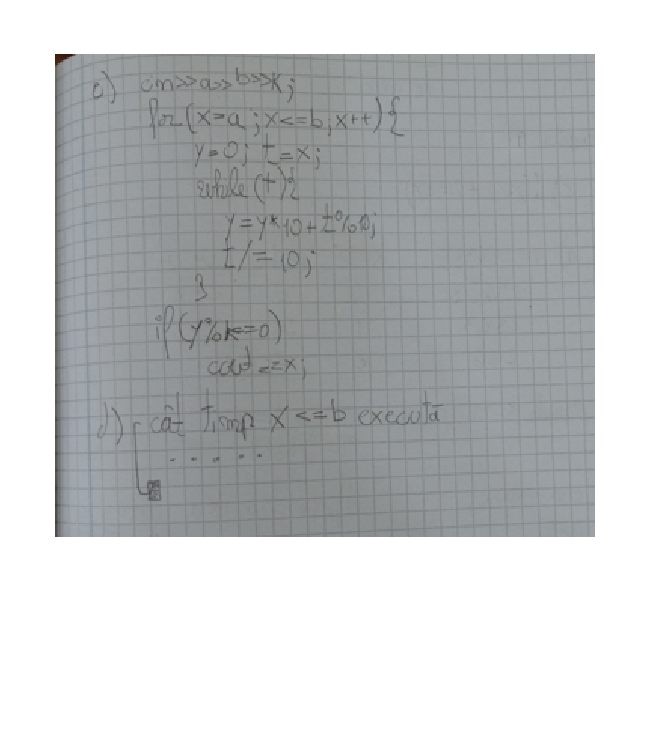 c) cin>>a>>b>>k;
for(x=a;x<=b;x++){
y=0; t=x;
while(t){
y=y*10+t%10;
t/=10;
}
if(y%k==0)
cout<<x;
d) cât timp x<=b execută
. . . . .